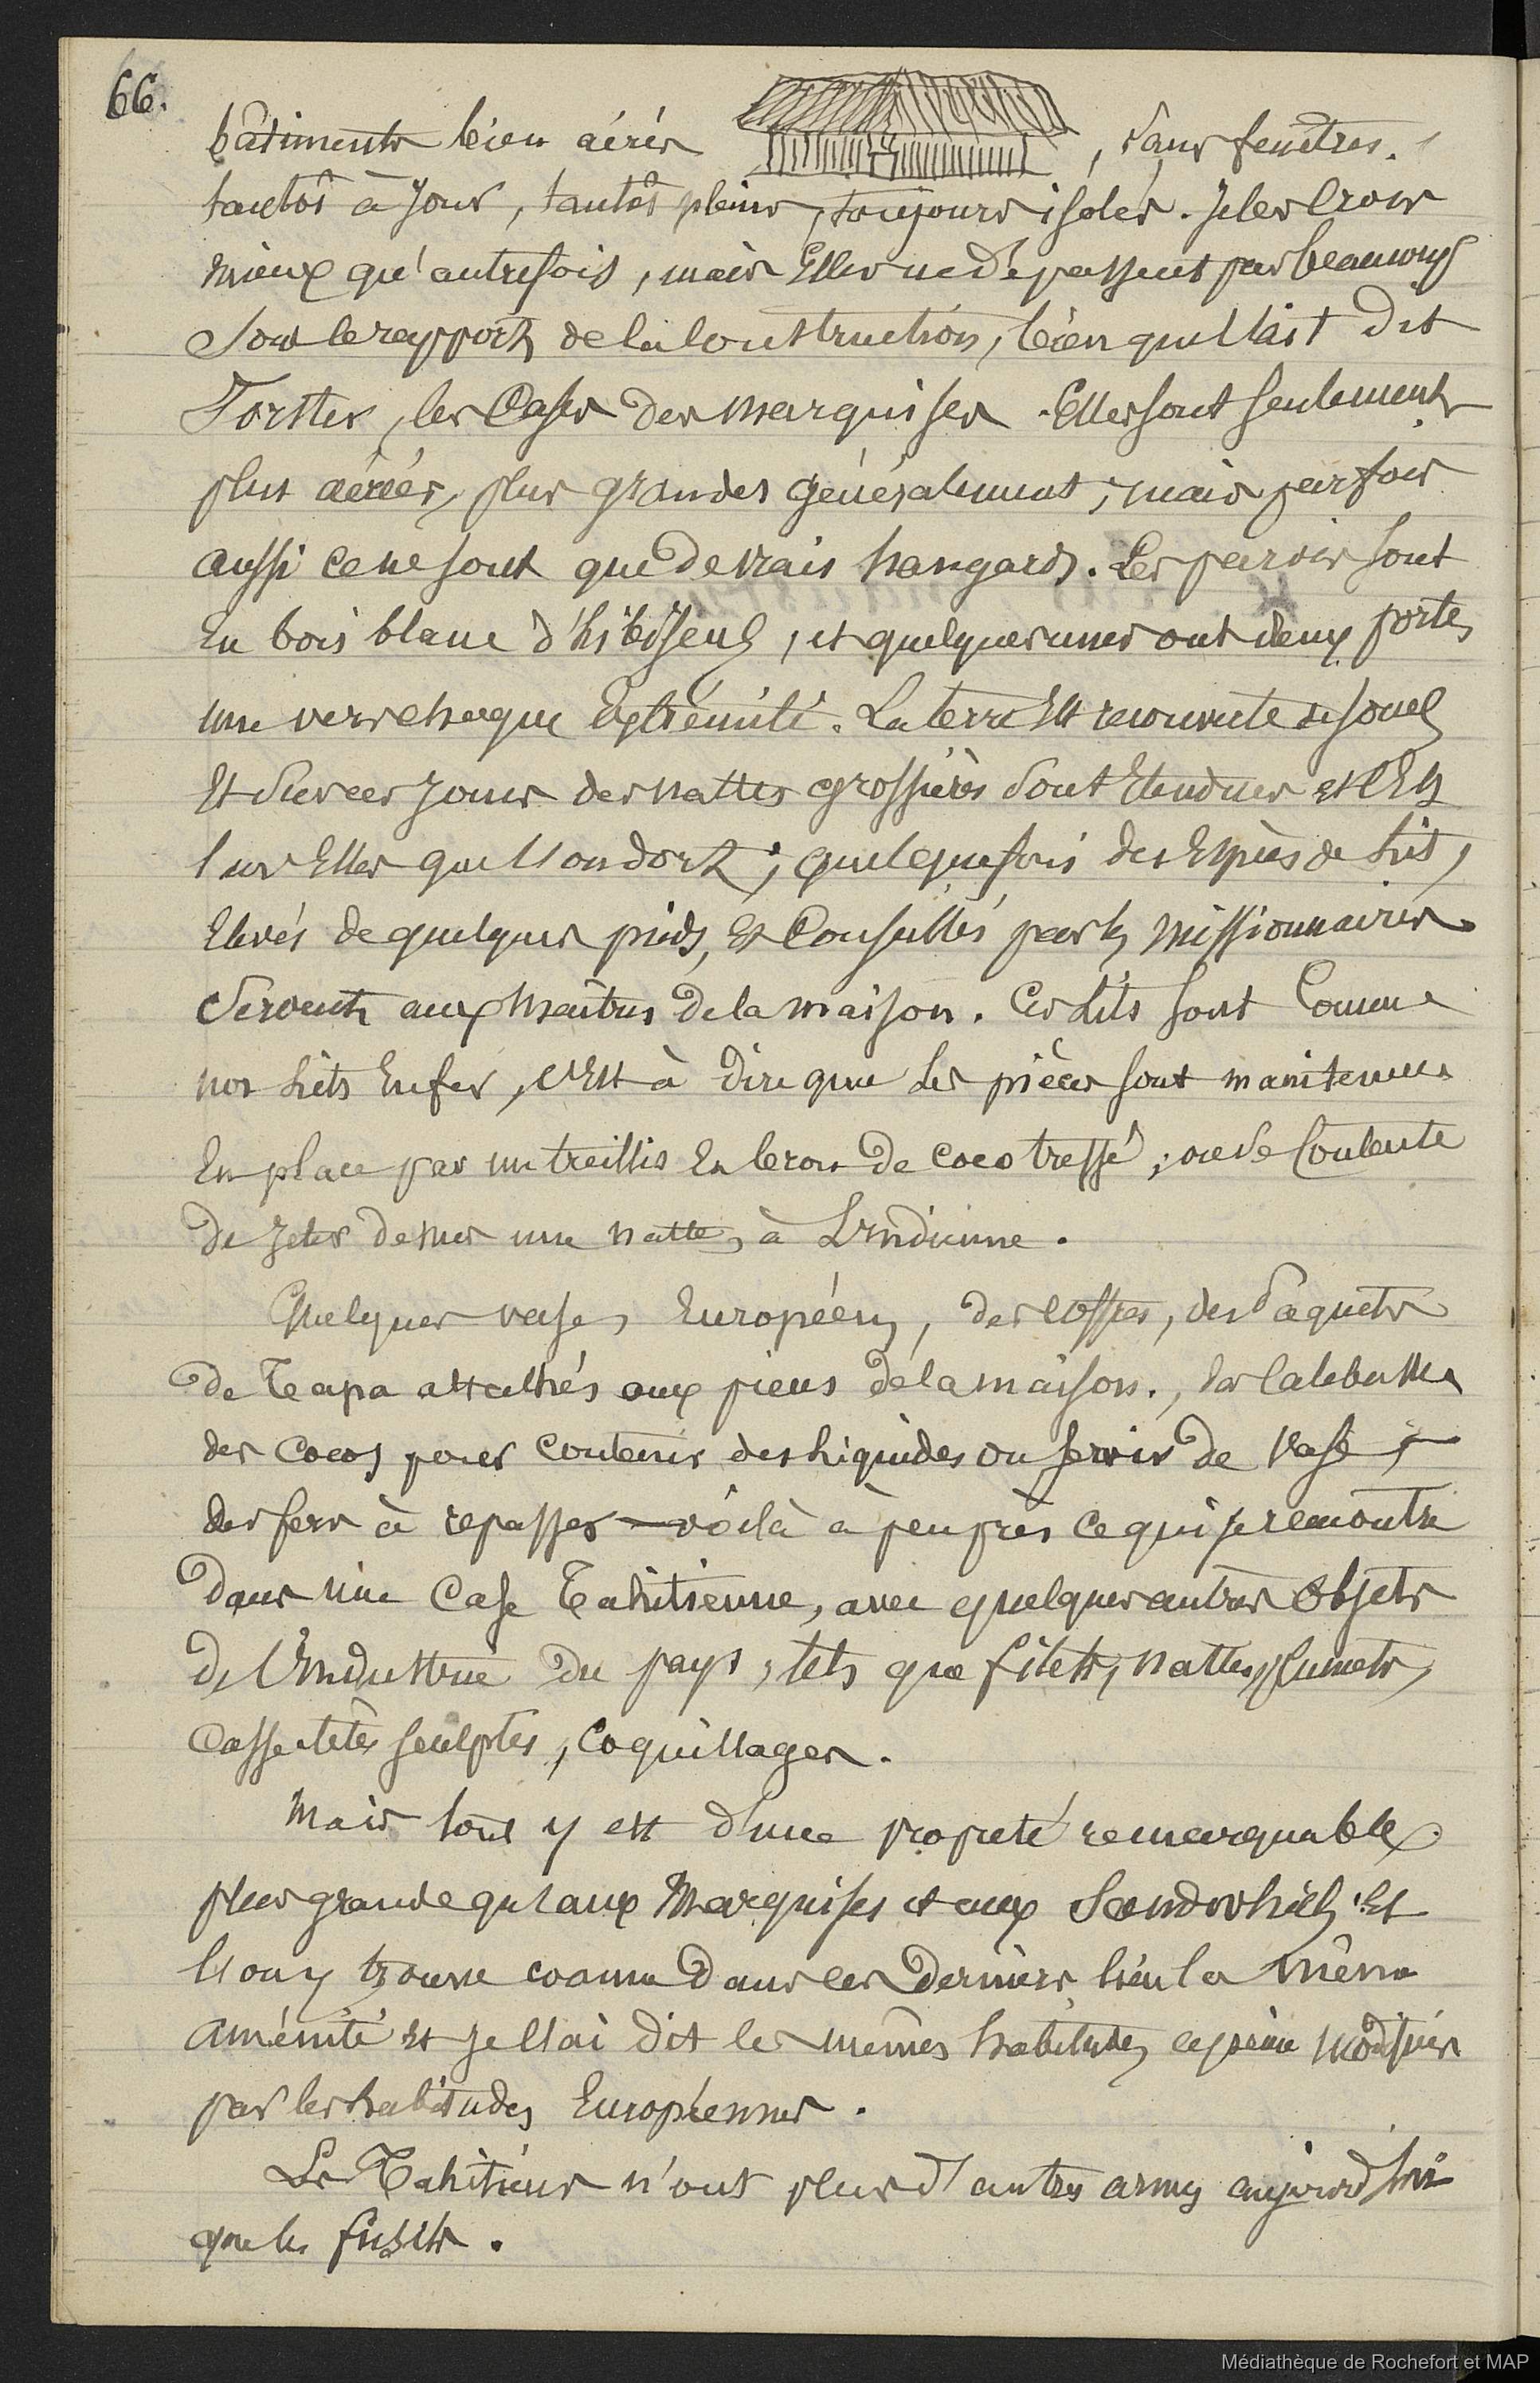 66.
bâtiments bien aérés , sans fenêtres.
tantôt à jour, tantôt pleins, toujours isolés. Je les crois
mieux qu'autrefois, mais Elles ne dépassent pas beaucoup
sous le rapport de la Construction, bien qu'il l'ait dit
Forster, les Cases des marquises. Elles sont seulement
plus aérées, plus grandes généralement, mais parfois
aussi ce ne sont que de vrais hangards. Les parois sont
En bois blanc d'hibiscus, et quelques unes ont deux portes
une vers chaque Extrémité. La terre Est recouverte de joncs
Et sur ces joncs des nattes grossières sont Etendues et c'Est
sur Elles que l'on dort ; quelquefois des Espèces de lits,
Elevés de quelques pieds, et Conseillés par les missionnaires
Servent aux Maîtres de la maison. Ces lits sont Comme
nos lits En fer, c'Est à dire que les pièces sont maintenues
En place par un treillis En brou de coco tressé ; on se Contente
de jeter dessus une natte, à L'indienne.
Quelques vases Européens, des coffres, des paquets
de Tapa attachés aux pieux de la maison., des Calebasses
des cocos pour Contenir des liquides ou servir de Vase ;
des fers à repasser — voilà à peu près ce qui se rencontre
dans une Case Tahitienne, avec quelques autres Objets
de l'Industrie du pays, tels que filets, nattes, plumets,
Casse têtes sculptés, Coquillages.
Mais tout y est d'une propreté remarquable
plus grande qu'aux Marquises et aux Sandwhich. Et
l'on y trouve comme dans ces derniers lieu la même
aménité et je l'ai dit les mêmes habitudes à peine modifiées
par les habitudes Européennes.
Les Tahitiens n'ont plus d'autres armes aujourd'hui
que les fusils.
Médiathèque de Rochefort et MAP